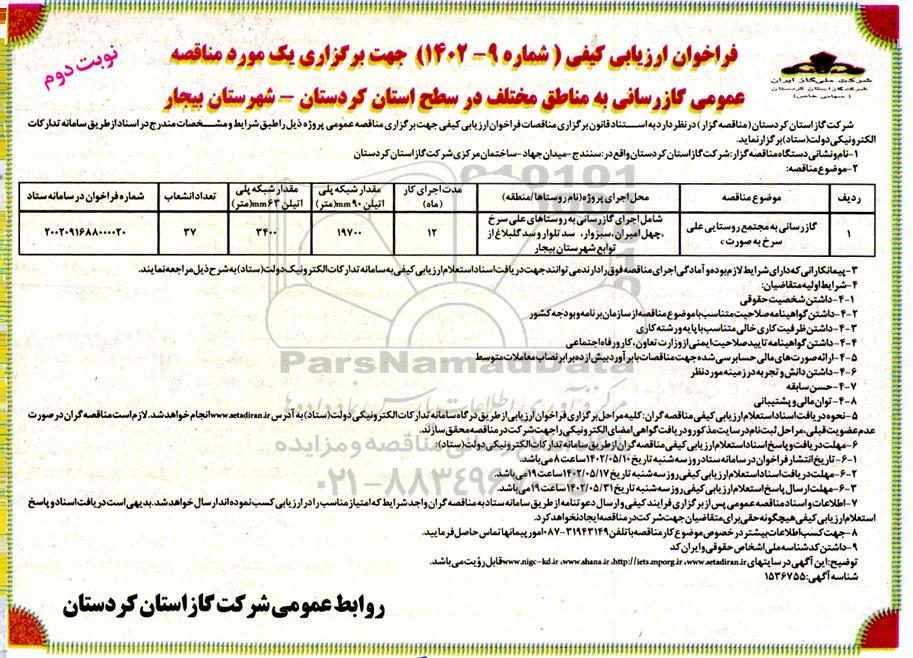 شرکت ملی گاز ایران
شرکت گاز استان کردستان
(سهامی خاص)
نوبت دوم
فراخوان ارزیابی کیفی (شماره ۹-۱۴۰۲) جهت برگزاری یک مورد مناقصه
عمومی گازرسانی به مناطق مختلف در سطح استان کردستان – شهرستان بیجار
شرکت گاز استان کردستان (مناقصه گزار) در نظر دارد به استناد قانون برگزاری مناقصات فراخوان ارزیابی کیفی جهت برگزاری مناقصه عمومی پروژه ذیل را طبق شرایط و مشخصات مندرج در اسناد از طریق سامانه تدارکات
الکترونیکی دولت (ستاد) برگزار نماید.
۱-نام و نشانی دستگاه مناقصه گزار: شرکت گاز استان کردستان واقع در: سنندج-میدان جهاد-ساختمان مرکزی شرکت گاز استان کردستان
۲-موضوع مناقصه:
ردیف | موضوع مناقصه | محل اجرای پروژه (نام روستاها/منطقه) | مدت اجرای کار (ماه) | مقدار شبکه پلی اتیلن ۹۰mm (متر) | مقدار شبکه پلی اتیلن ۶۳mm (متر) | تعداد انشعاب | شماره فراخوان در سامانه ستاد
۱ | گازرسانی به مجتمع روستایی علی سرخ به صورت c | شامل اجرای گازرسانی به روستاهای علی سرخ ،چهل امیران،سبزوار، سد تلوار و سد گلبلاغ از توابع شهرستان بیجار | ۱۲ | ۱۹۷۰۰ | ۳۴۰۰ | ۳۷ | ۲۰۰۲۰۹۱۶۸۸۰۰۰۰۲۰
۳-پیمانکارانی که دارای شرایط لازم بوده و آمادگی اجرای مناقصه فوق را دارند می توانند جهت دریافت اسناد استعلام ارزیابی کیفی به سامانه تدارکات الکترونیک دولت (ستاد) به شرح ذیل مراجعه نمایند.
۴-شرایط اولیه متقاضیان:
۴-۱-داشتن شخصیت حقوقی
۴-۲-داشتن گواهینامه صلاحیت متناسب با موضوع مناقصه از سازمان برنامه و بودجه کشور
۴-۳-داشتن ظرفیت کاری خالی متناسب با پایه و رشته کاری
۴-۴-داشتن گواهینامه تایید صلاحیت ایمنی از وزارت تعاون، کار و رفاه اجتماعی
۴-۵-ارائه صورت های مالی حسابرسی شده جهت مناقصات با برآورد بیش از ده برابر نصاب معاملات متوسط
۴-۶-داشتن دانش و تجربه در زمینه مورد نظر
۴-۷-حسن سابقه
۴-۸-توان مالی و پشتیبانی
۵-نحوه دریافت اسناد استعلام ارزیابی کیفی مناقصه گران: کلیه مراحل برگزاری فراخوان ارزیابی از طریق درگاه سامانه تدارکات الکترونیکی دولت (ستاد) به آدرس www.setadiran.ir انجام خواهد شد. لازم است مناقصه گران در صورت
عدم عضویت قبلی، مراحل ثبت نام در سایت مذکور و دریافت گواهی امضای الکترونیکی را جهت شرکت در مناقصه محقق سازند.
۶-مهلت دریافت و پاسخ اسناد استعلام ارزیابی کیفی مناقصه گران از طریق سامانه تدارکات الکترونیکی دولت (ستاد):
۶-۱-تاریخ انتشار فراخوان در سامانه ستاد روز سه شنبه تاریخ ۱۴۰۲/۰۵/۱۰ ساعت ۸ می باشد.
۶-۲-مهلت دریافت اسناد استعلام ارزیابی کیفی روز سه شنبه تاریخ ۱۴۰۲/۰۵/۱۷ ساعت ۱۹ می باشد.
۶-۳-مهلت ارسال پاسخ استعلام ارزیابی کیفی روز سه شنبه تاریخ ۱۴۰۲/۰۵/۳۱ ساعت ۱۹ می باشد.
۷-اطلاعات و اسناد مناقصه عمومی پس از برگزاری فرایند کیفی و ارسال دعوتنامه از طریق سامانه ستاد به مناقصه گران واجد شرایط که امتیاز مناسب را در ارزیابی کسب نموده اند ارسال خواهد شد. بدیهی است دریافت اسناد و پاسخ
استعلام ارزیابی کیفی هیچگونه حقی برای متقاضیان جهت شرکت در مناقصه ایجاد نخواهد کرد.
۸-جهت کسب اطلاعات بیشتر در خصوص موضوع کار مناقصه با تلفن ۳۱۹۴۳۱۴۹-۰۸۷ امور پیمانها تماس حاصل فرمایید.
۹-داشتن کد شناسه ملی اشخاص حقوقی و ایران کد
توضیح: این آگهی در سایتهای www.nigc-kd.ir ،www.shana.ir ،http://iets.mporg.ir ،www.setadiran.ir قابل رؤیت می باشد.
شناسه آگهی: ۱۵۳۶۷۵۵
روابط عمومی شرکت گاز استان کردستان
ParsNamadData